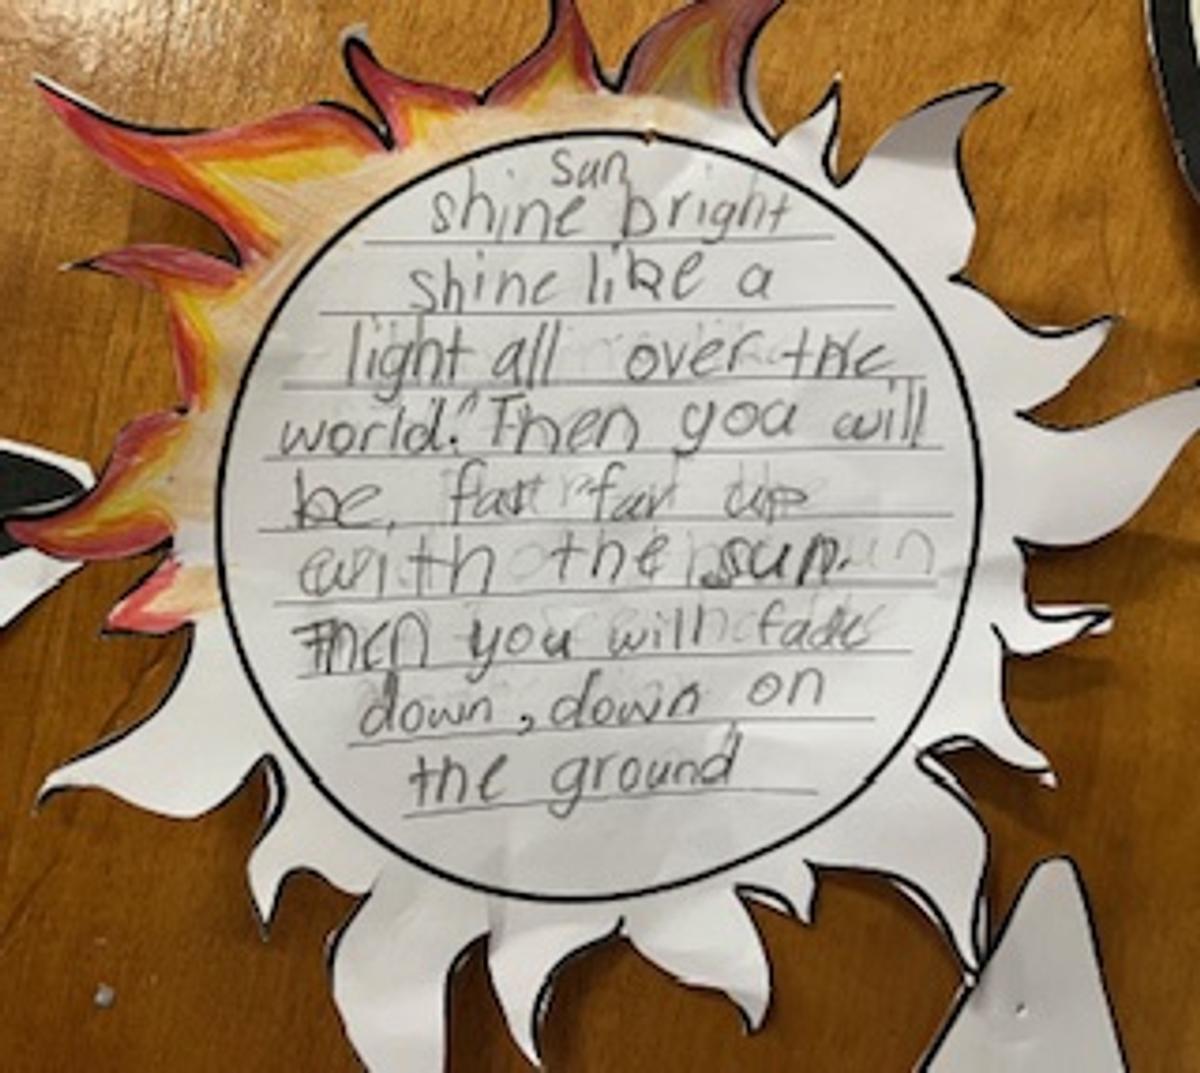 sun
shine bright
shine like a
light all over the
world." Then you will
be, far far up
with the sun.
Then you will fade
down, down on
the ground